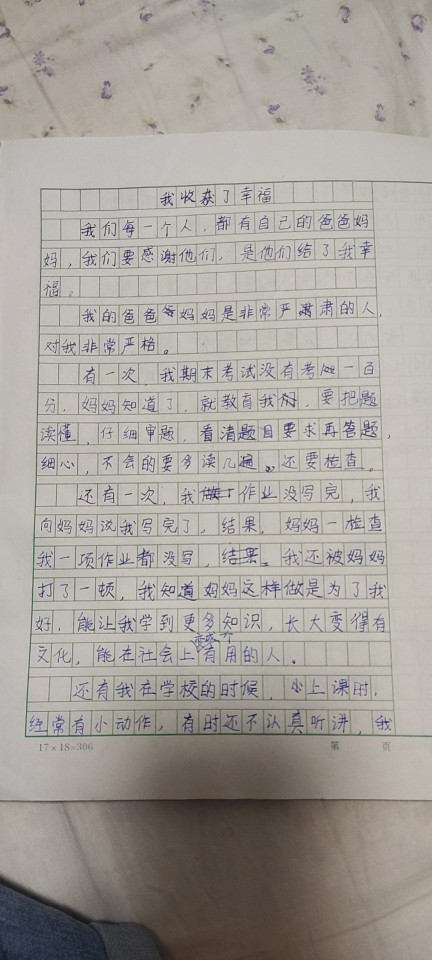 我收获了幸福
我们每一个人，都有自己的爸爸妈
妈，我们要感谢他们，是他们给了我幸
福。
我的爸爸妈妈是非常严肃的人，
对我非常严格。
有一次，我期末考试没有考一百
分，妈妈知道了，就教育我，要把题
读懂，仔细审题，看清题目要求再答题，
细心，不会的要多读几遍。还要检查。
还有一次，我作业没写完，我
向妈妈说我写完了，结果，妈妈一检查
我一项作业都没写，我还被妈妈
打了一顿，我知道妈妈这样做是为了我
好，能让我学到更多知识，长大变得有
文化，能在社会上有用的人。
还有我在学校的时候，上课时，
经常有小动作，有时还不认真听讲，我
17×18=306 第 页